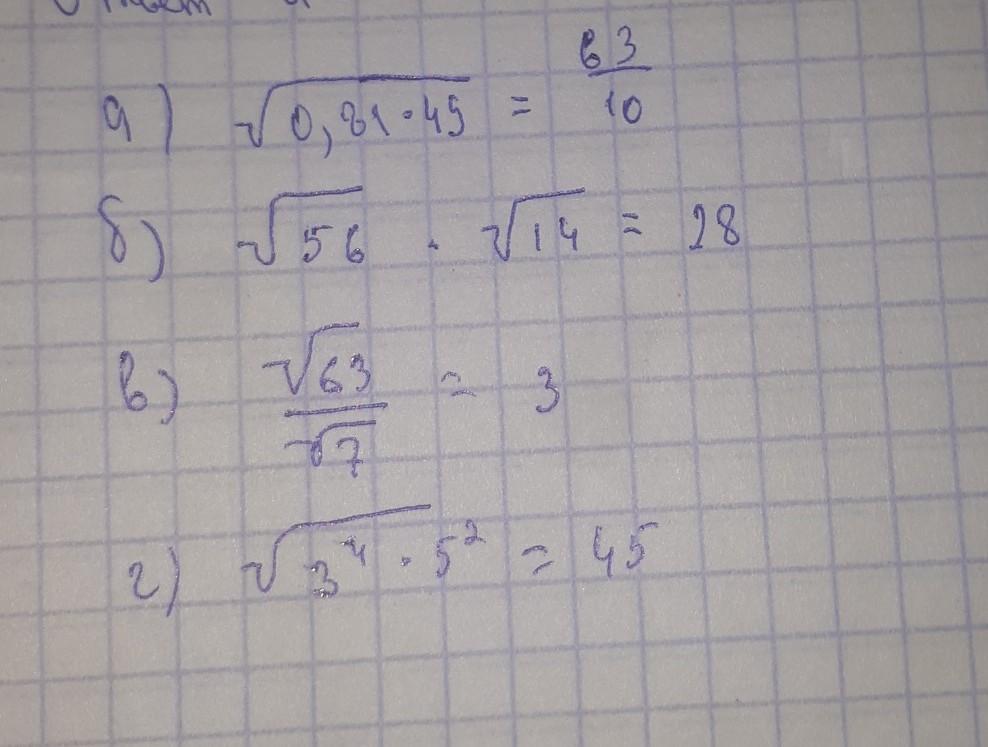 а) √0,81·49 = 63/10
б) √56 · √14 = 28
в) √63/√7 = 3
г) √3⁴·5² = 45